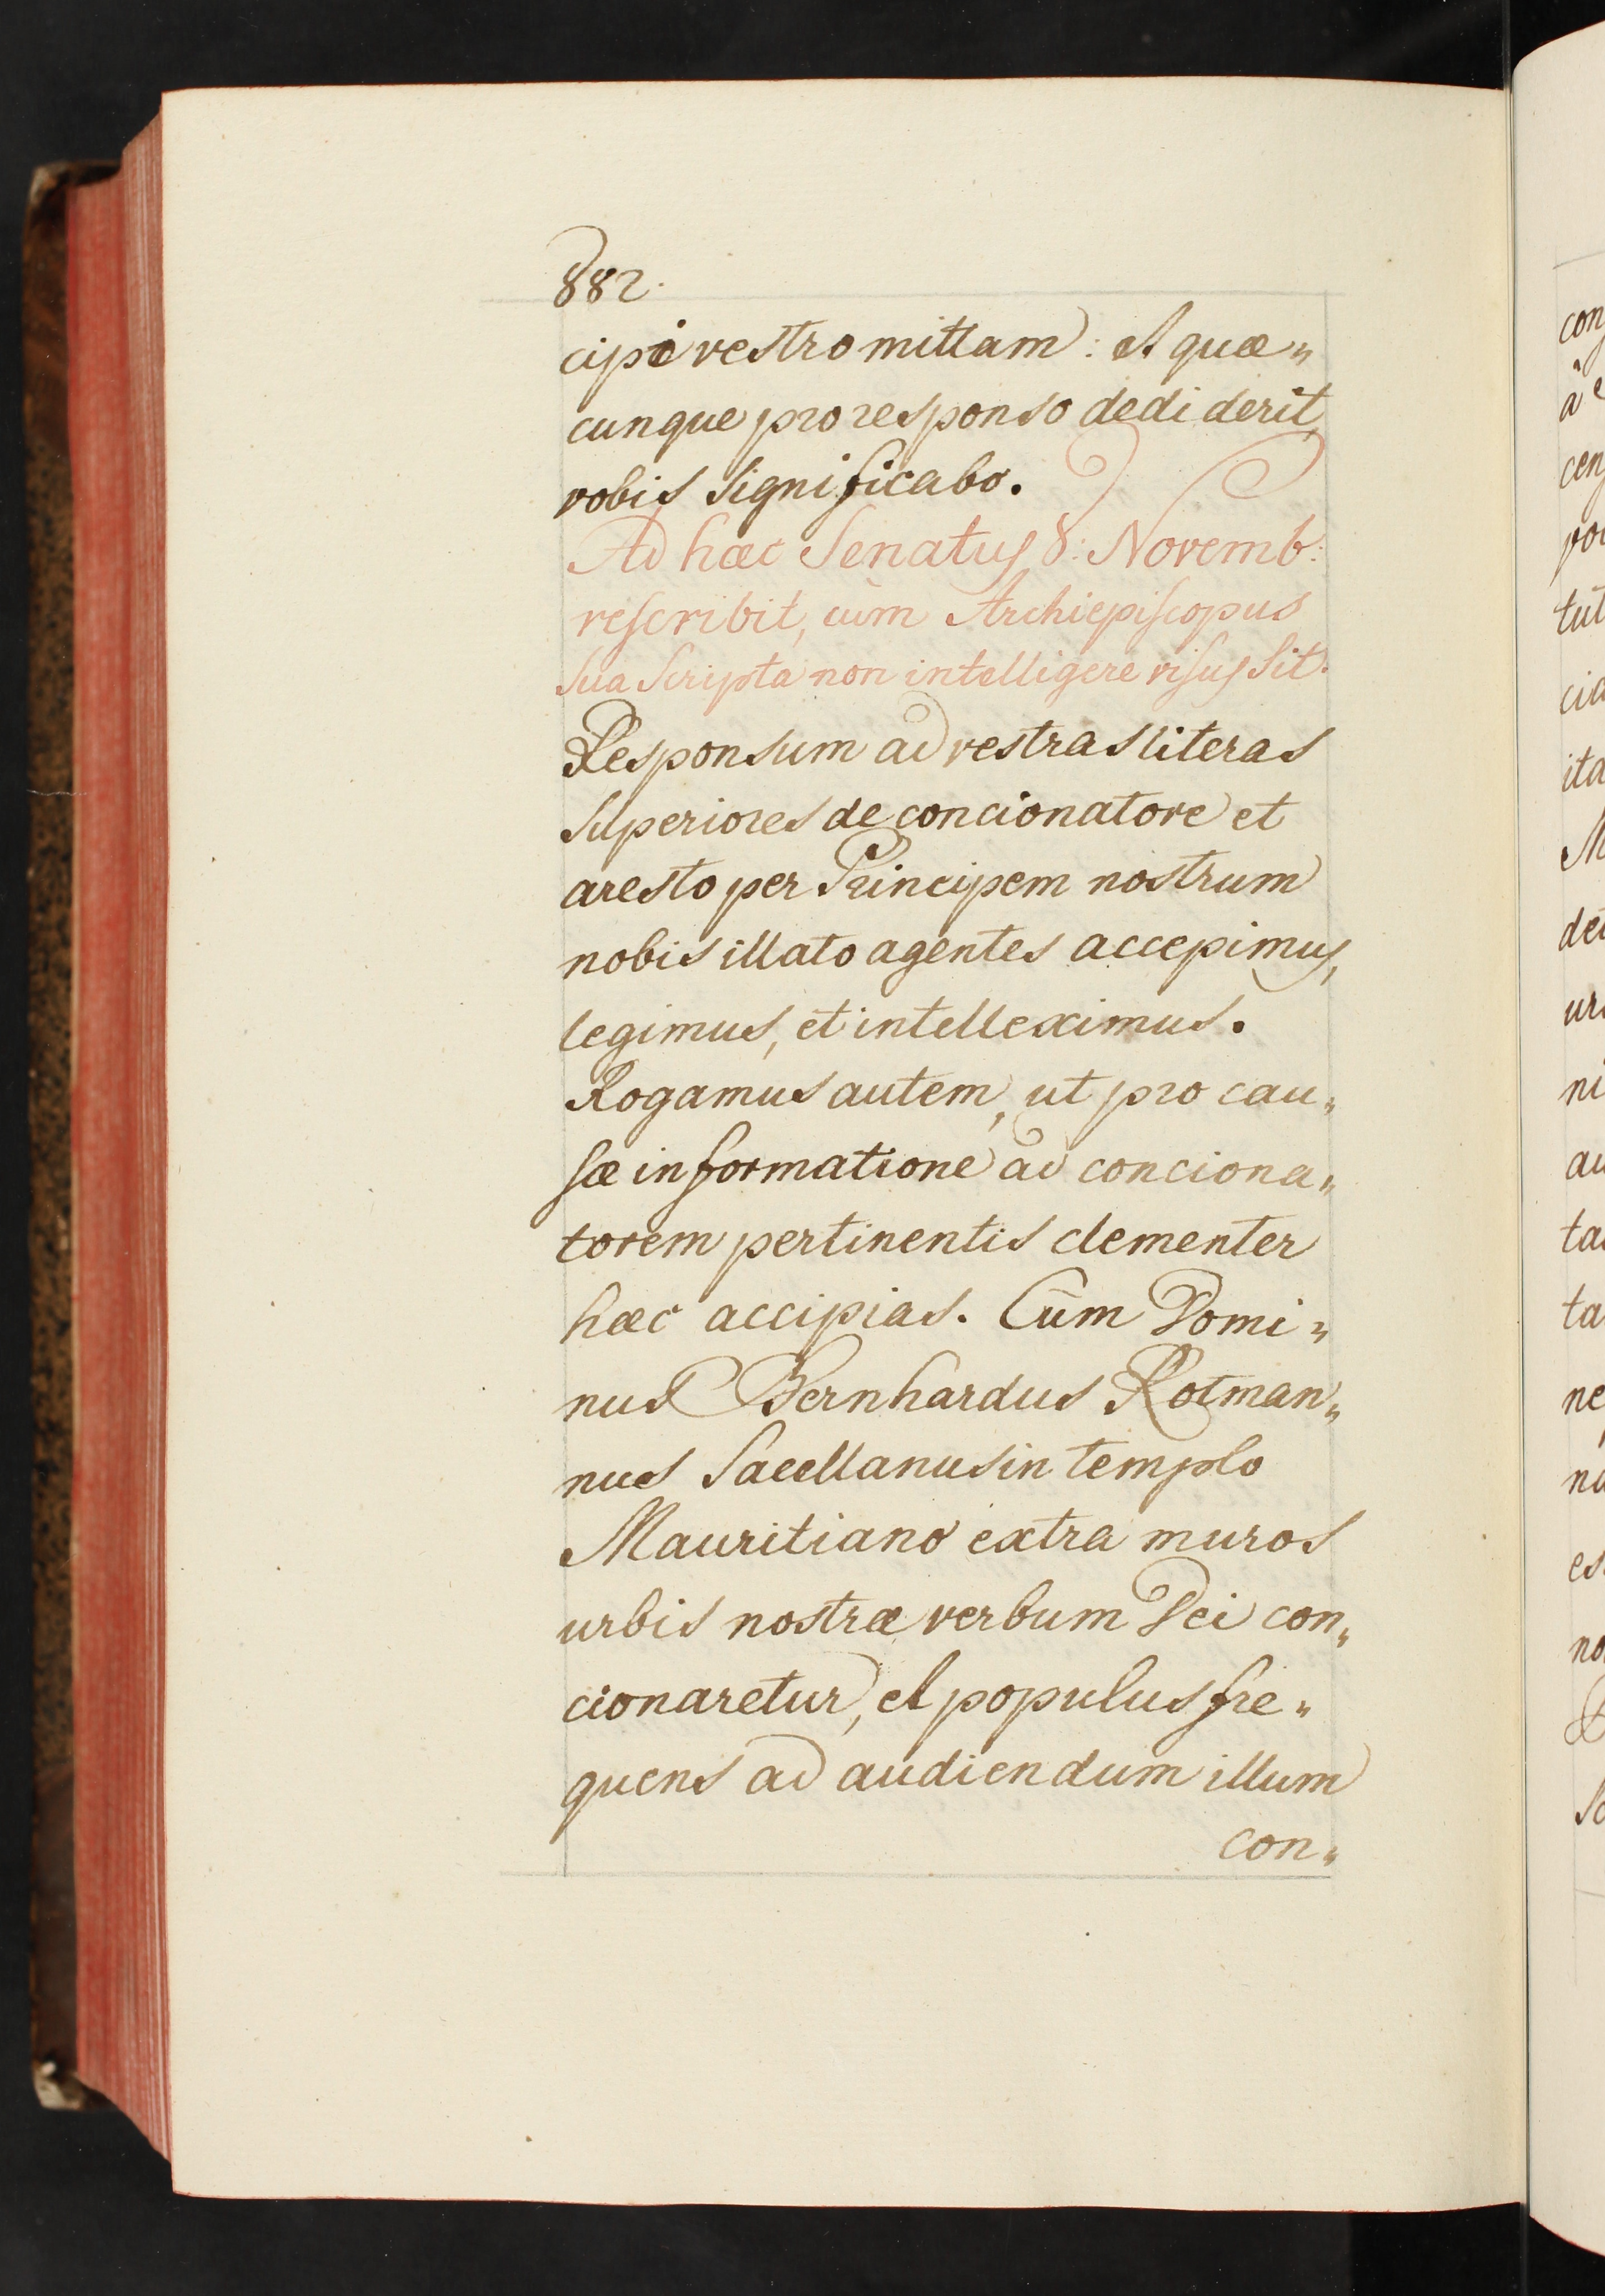 882.
cipi vestro mittam: et quæ„
cunque pro responso dediderit,
vobis significabo.
Ad hæc Senatus 8: Novemb:
rescribit, cùm Archiepiscopus
sua scripta non intelligere visus sit.
Responsum ad vestras literas
superiores de concionatore et
aresto per Principem nostrum
nobis illato agentes accepimus,
legimus, et intelleximus.
Rogamus autem, ut pro cau„
sæ informatione ad conciona„
torem pertinentis clementer
hæc accipias. Cùm Domi„
nus Bernhardus Rotman„
nus Sacellanus in templo
Mauritiano extra muros
urbis nostræ verbum Dei con„
cionaretur, et populus fre„
quens ad audiendum illum
con„